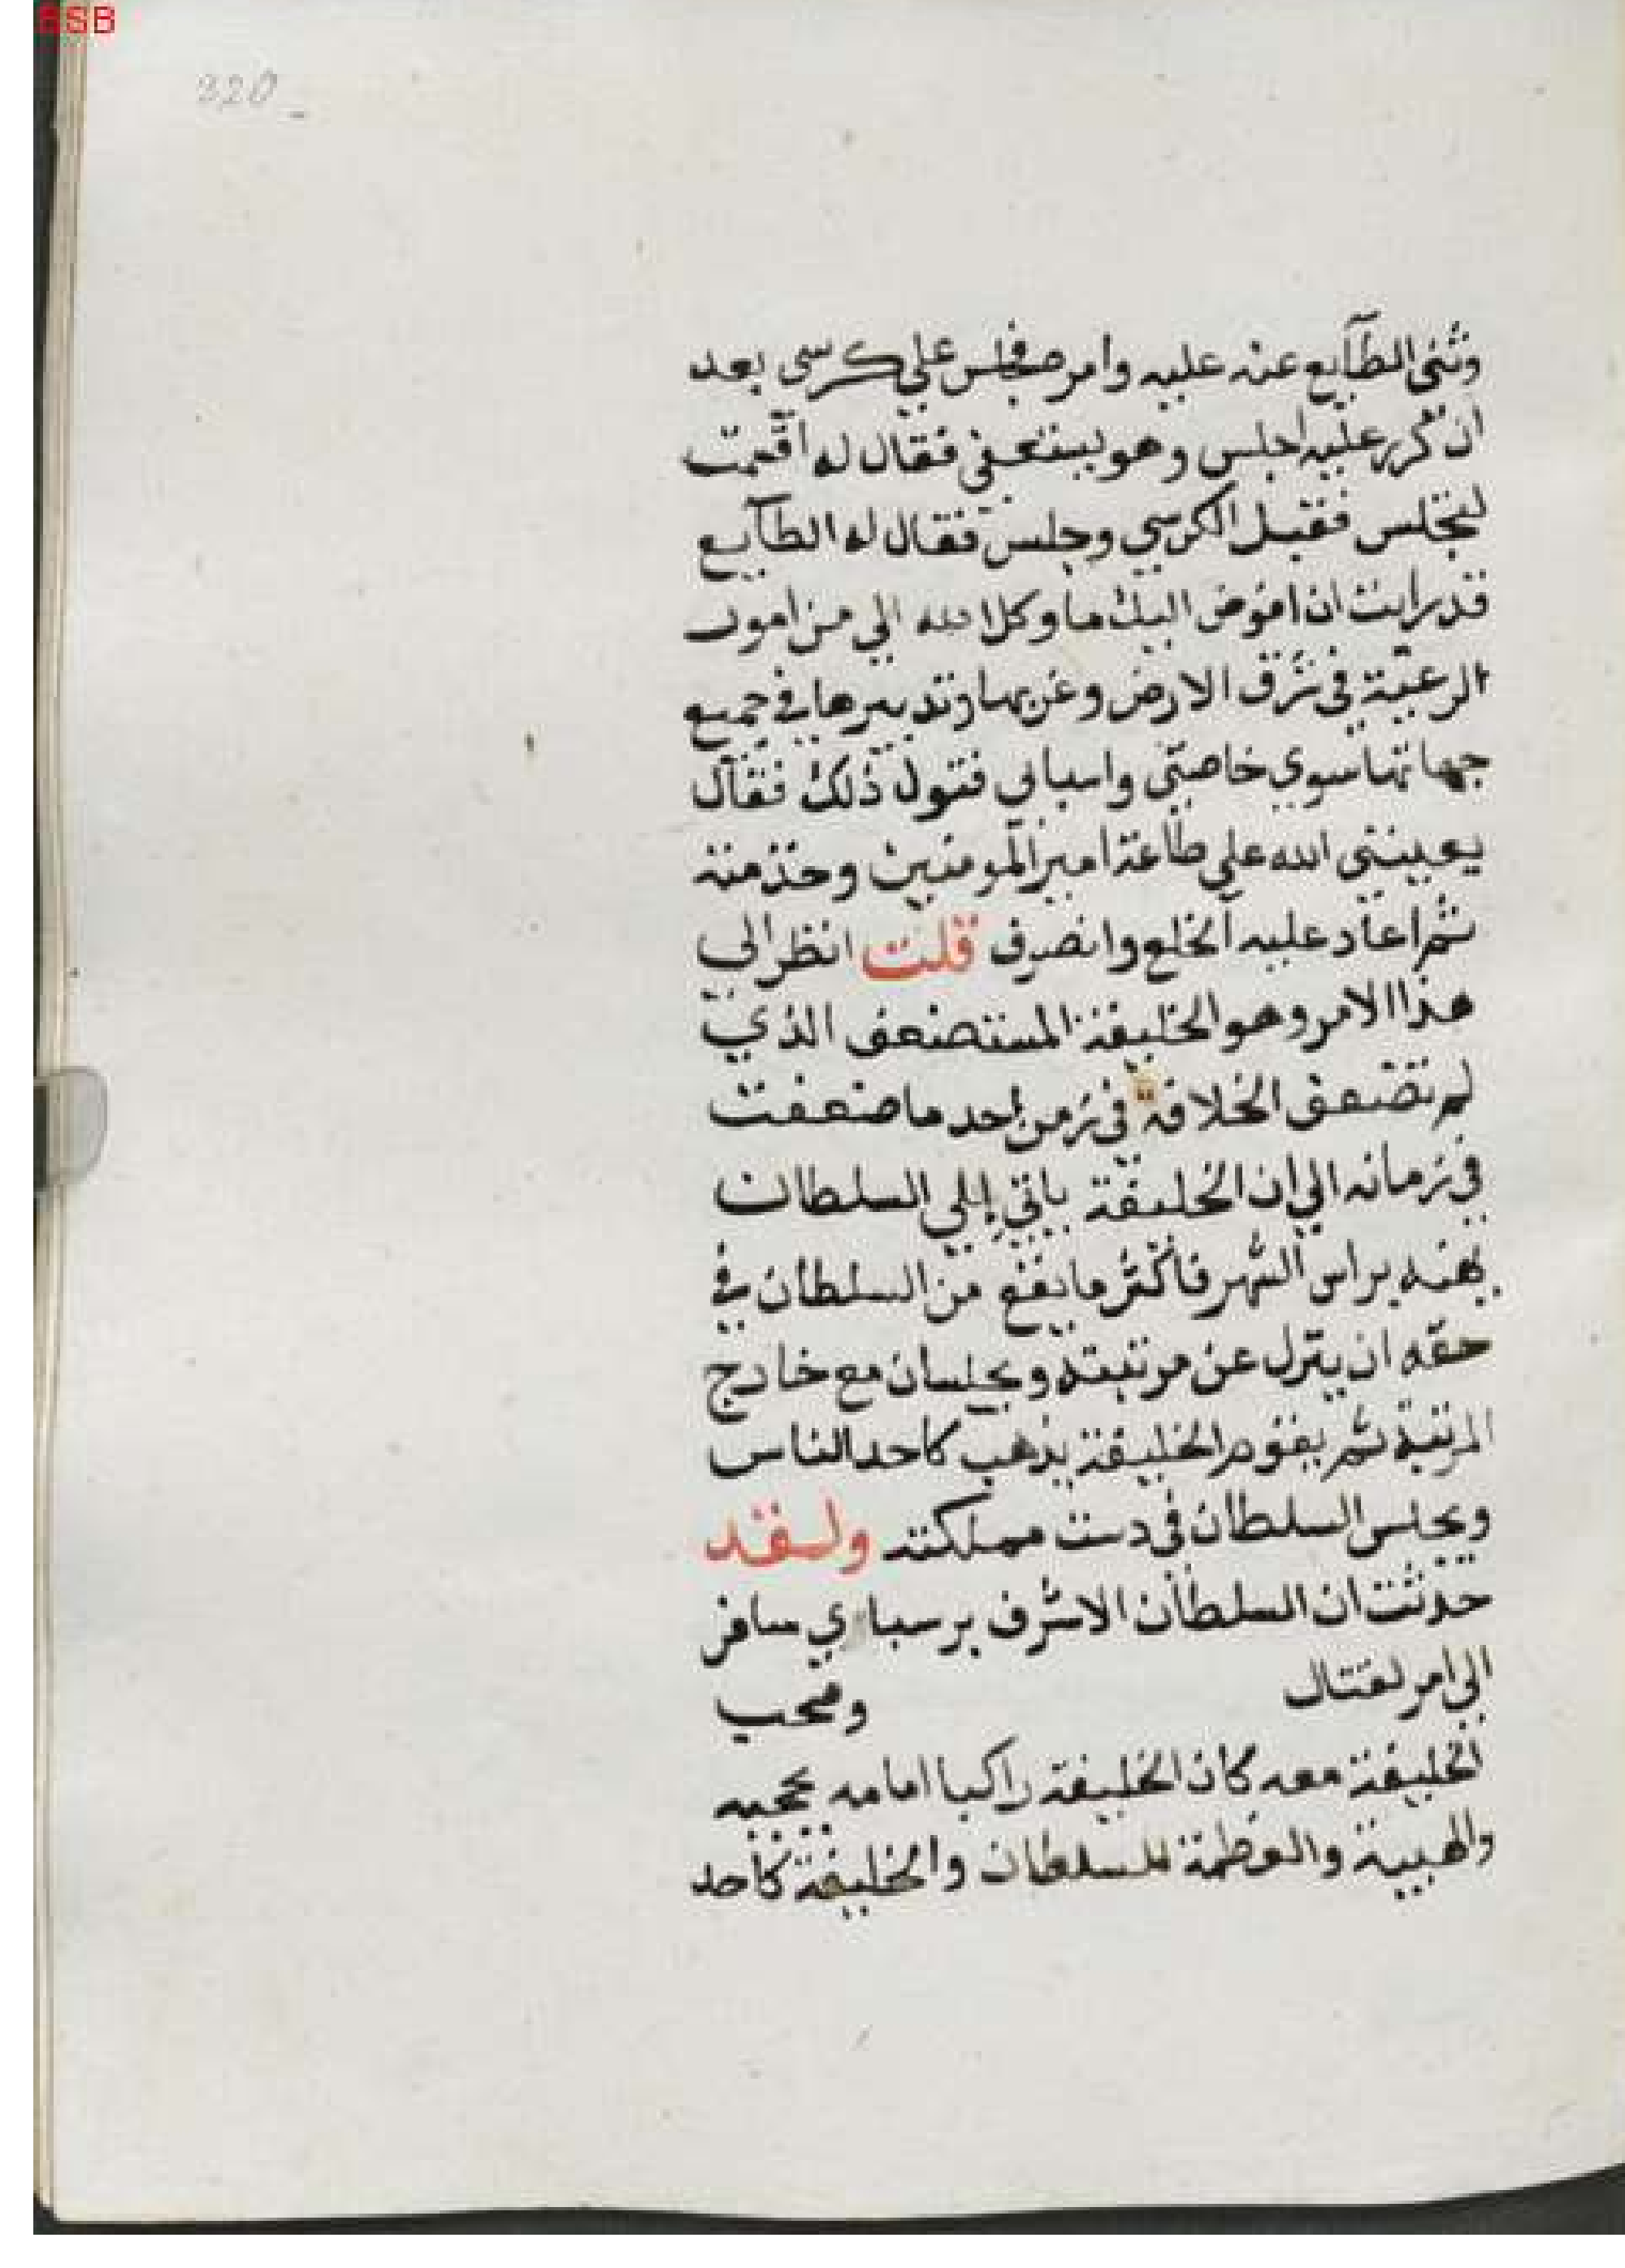 BSB
320
وثنى الطآيع عنه عليه وامره فجلس علي كرسي بعد
ان كرر عليه اجلس وهو يستعفي فقال له اقسمت
لتجلس فقبل الكرسي وجلس فقال له الطآيع
قد رايت ان افوض اليك ما وكل الله الي من امور
الرعيّة في شرق الارض وغربها وتدبيرها في جميع
جهاتها سوي خاصتي واسبابي فتول ذلك فقال
يعينني الله علي طاعة امير المومنين وخدمته
ثم اعاد عليه الخلع وانصرف قلت انظر الي
هذا الامر وهو الخليفة المستضعف الذي
لم تضعف الخلافة في زمن احد ما ضعفت
في زمانه الي ان الخليفة ياتي اللي السلطان
يهنه براس الشهر فاكثر ما يقع من السلطان في
حقه ان ينزل عن مرتبته ويجلسان مع خارج
المرتبة ثم يقوم الخليفة يذهب كاحد الناس
ويجلس السلطان في دست مملكته ولقد
حدثت ان السلطان الاشرف برسباي سافر
الي امر لقتال وصحب
الخليفة معه كان الخليفة راكبا امامه يحجبه
والهيبة والعظمة للسلطان والخليفة كاحد